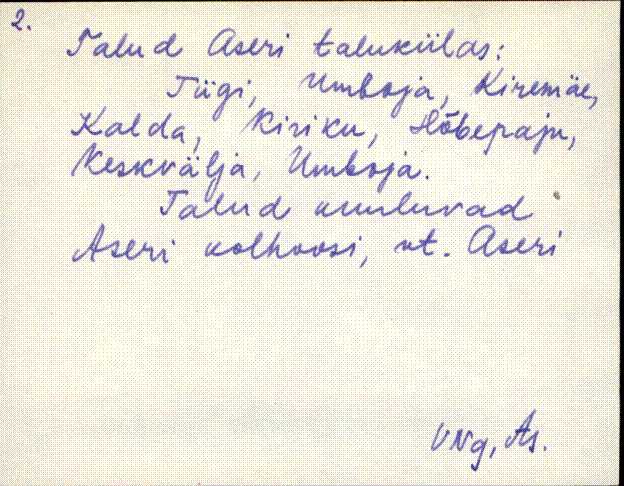 2.
Talud Aseri talukülas:
Tiigi, Umboja, Kiremäe,
Kalda, Kiriku, Hõbepaju,
Keskvälja, Umboja.
Talud kuuluvad
Aseri kolhoosi, vt. Aseri
VNg, As.